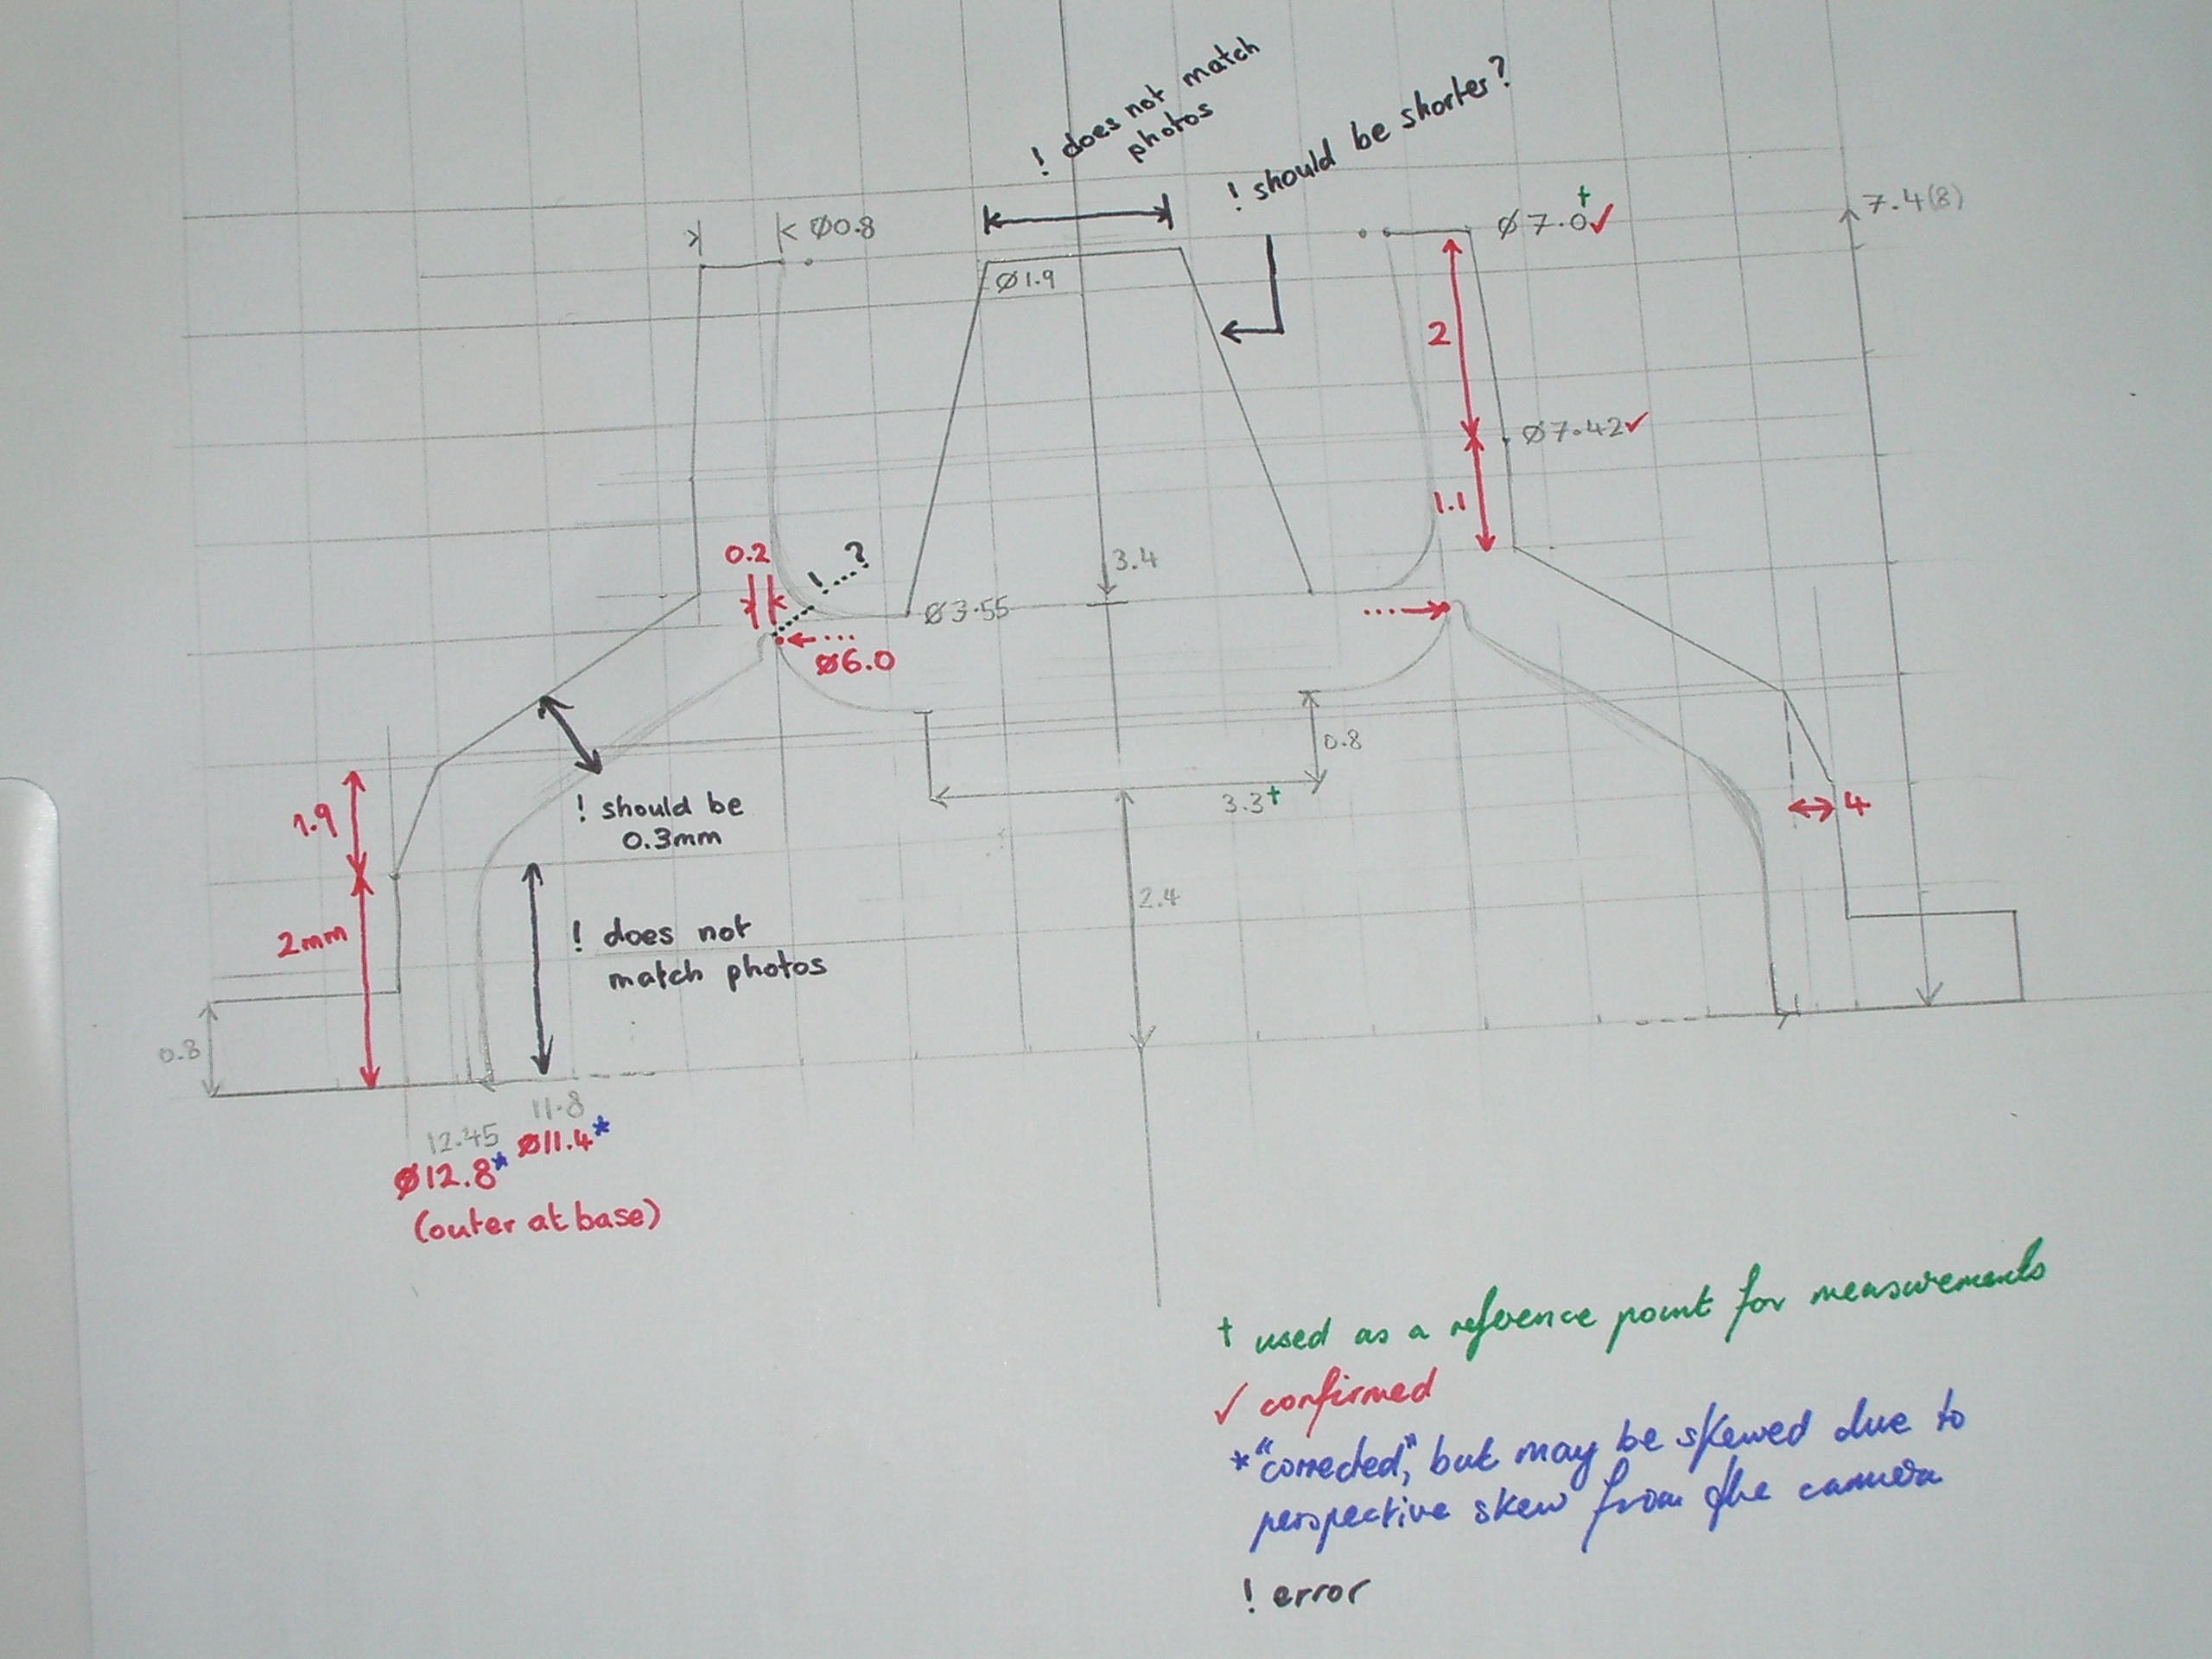 ! does not match
photos
! should be shorter?
Ø0.8
Ø7.0†✓
7.4(8)
Ø1.9
2
Ø7.42✓
1.1
0.2
! ?
3.4
Ø3.55
Ø6.0
0.8
3.3†
4
1.9
! should be
0.3mm
2.4
2mm
! does not
match photos
0.8
11.8
12.45
Ø11.4*
Ø12.8*
(outer at base)
† used as a reference point for measurements
✓ confirmed
* "corrected," but may be skewed due to
perspective skew from the camera
! error